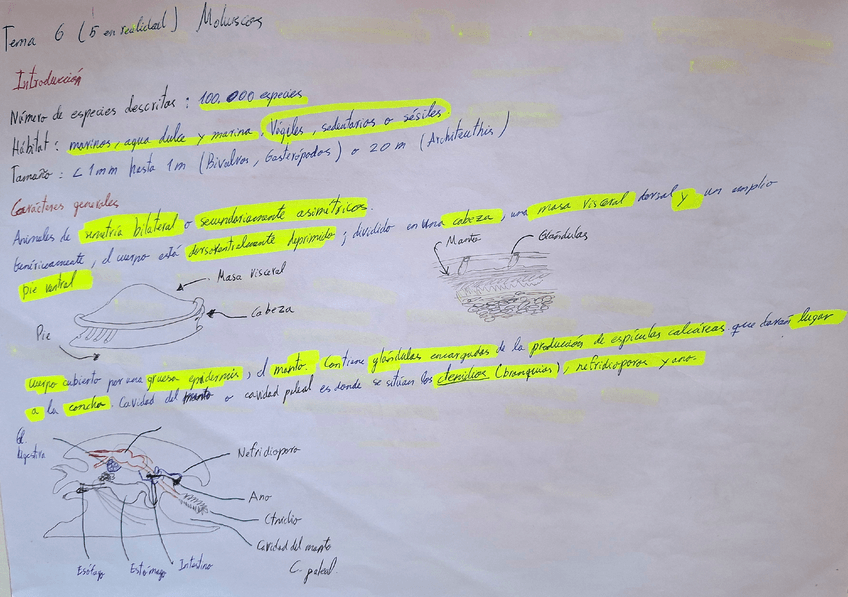 Tema 6 (5 en realidad) Moluscos
Introducción
Número de especies descritas : 100.000 especies
Hábitat : marinos, agua dulce y marina, Vágiles, sedentarios o sésiles
Tamaño : < 1 mm hasta 1 m (Bivalvos, Gasterópodos) o 20 m (Architeuthis)
Carácteres generales
Animales de simetría bilateral o secundariamente asimétricos.
Genéricamente, el cuerpo está dorsoventralmente deprimido ; dividido en una cabeza, una masa visceral dorsal y un amplio
pie ventral
Manto
Glándulas
Masa visceral
Cabeza
Pie
Cuerpo cubierto por una gruesa epidermis, el manto. Contiene glándulas encargadas de la producción de espículas calcáreas que darán lugar
a la concha. Cavidad del manto o cavidad paleal es donde se sitúan los ctenidios (branquias), nefridioporos y ano.
Gl.
Digestiva
Nefridioporo
Ano
Ctnidio
Cavidad del manto
C. paleal.
Esófago
Estómago
Intestino